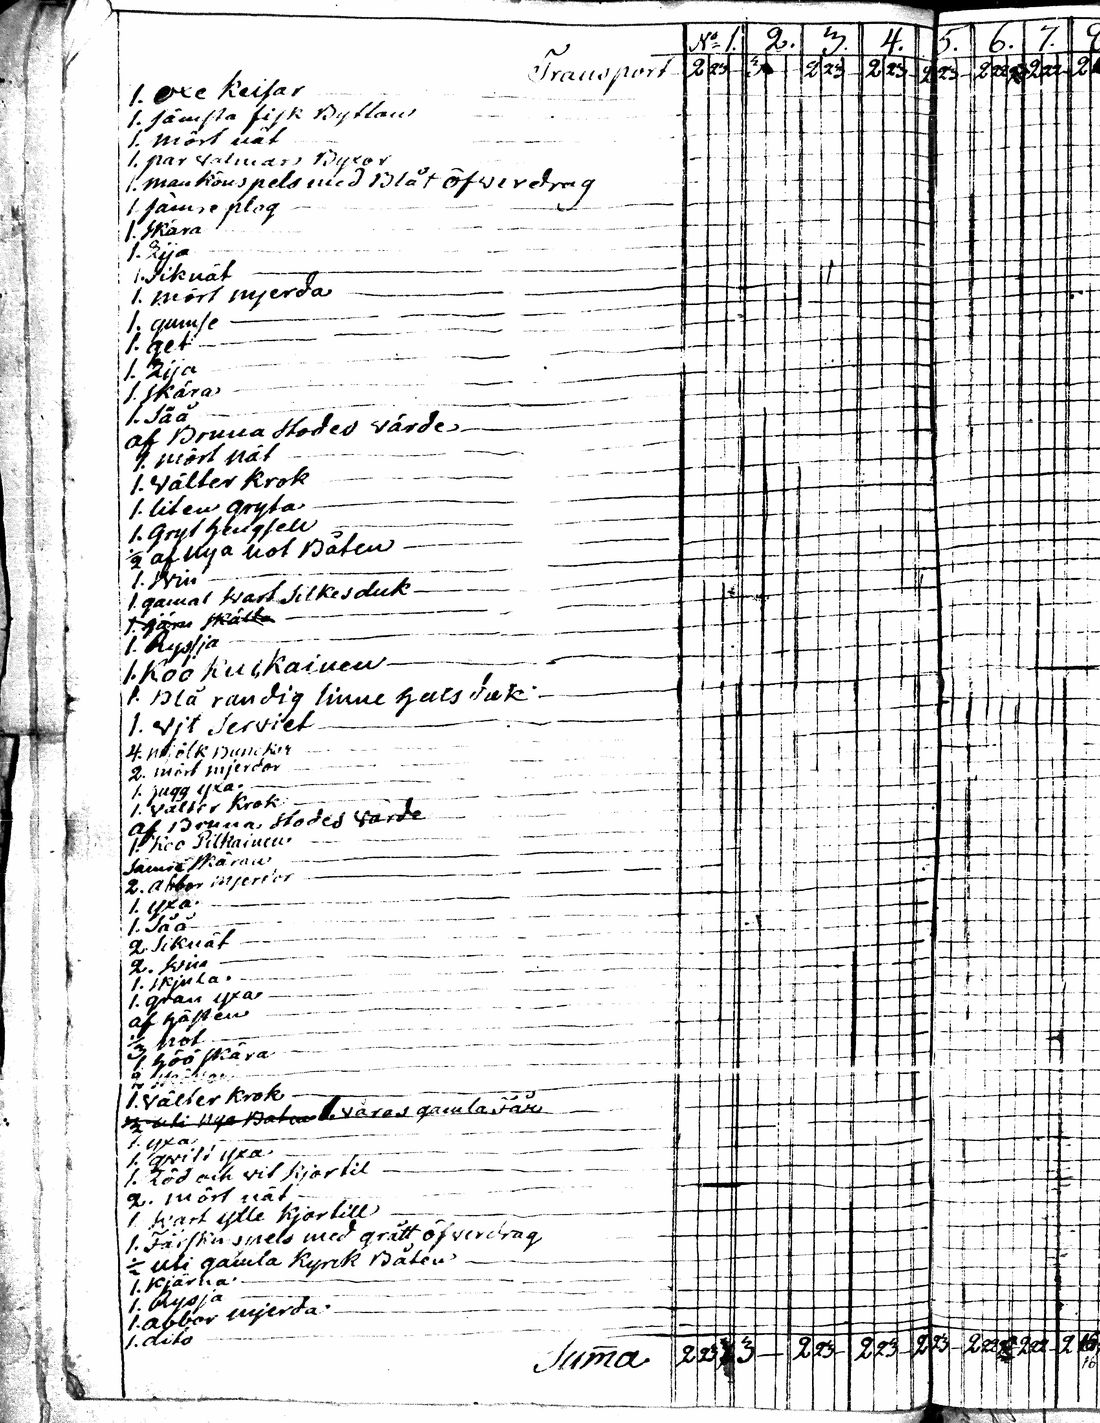 No 1. 2. 3. 4. 5. 6. 7.
Transport 2 23 2 23 2 23 2 23
1. oxe keisar
1. sämsta fisk Byttan
1. mört nät
1. par walmars Byxor
1. manköns pels med Blåt öfwerdrag
1. sämre plog
1. skära
1. Lija
1. siknät
1. mört mjerda
1. gumse
1. get
1. Lija
1. skära
1. Såå
af Bruna stodes värde
mört nät
1. välter krok
1. liten gryta
1. Gryt
1/2 af nya not Båten
1. swin
1. gamal swart silkesduk
1. järn
1. Ryssja
1. Koo Ruskainen
1. Blå randig linne halsduk
1. vjt Serviet
4. mjölk Bunckar
2. mört mjerdor
1. hugg yxa
1. välter krok
af Bruna stodes wärde
1. Koo Pilkainen
sämre skäran
2. abbor mjerdor
1. yxa
1. Såå
2. siknät
2. swin
1. skjuta
1. gran yxa
af hästen
1/3 not
1. höö skära
1. välter krok
1/2 uti nya Båten 1. våras gamla
1. yxa
1. yxa
1. Röd och vit kjortil
2. mört nät
1. swart ylle kjortill
1. Fårskins pels med grått öfwerdrag
1/2 uti gamla kyrck Båten
1. kjärna
1. Rysja
1. abbor mjerda
1. dito
Suma 2 23 3 — 2 23 — 2 23 — 2 23